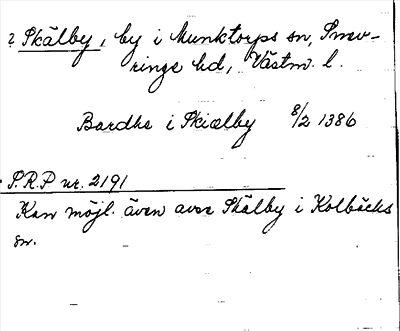 ? Skälby, by i Munktorps sn, Snev-
ringe hd, Västm. l.
Bardhe i Skiælby 8/2 1386
S.R.P nr. 2191
Kan möjl. även avse Skälby i Kolbäcks
sn.